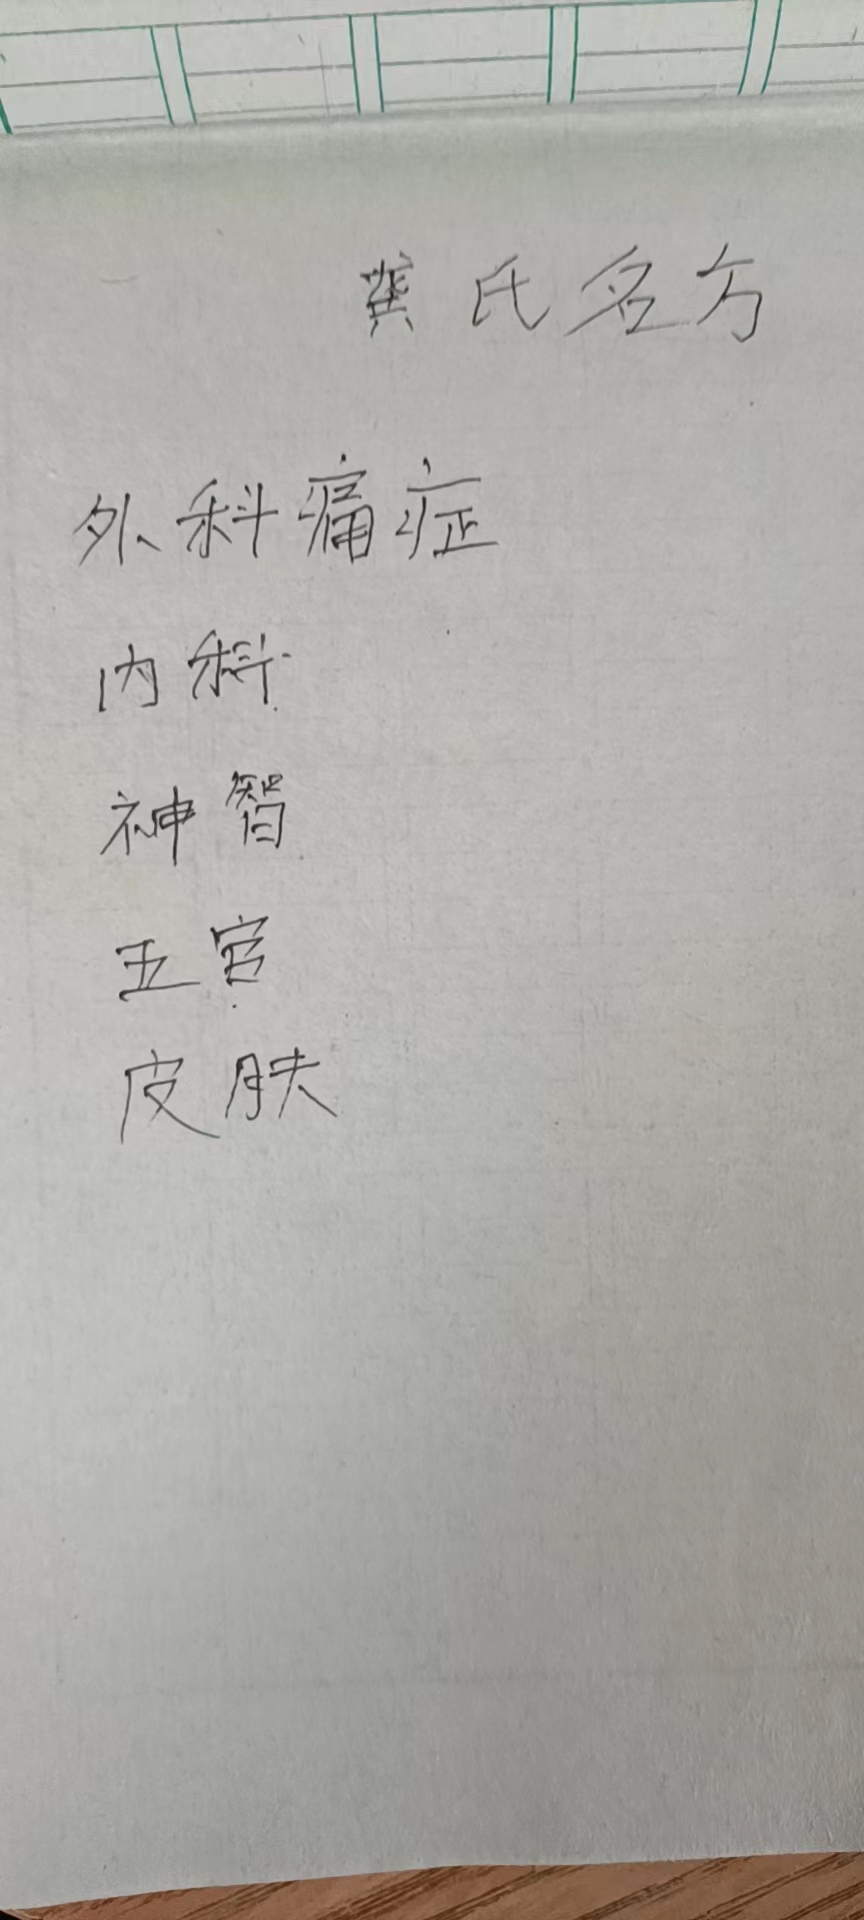 龚氏名方
外科痛症
内科
神智
五官
皮肤